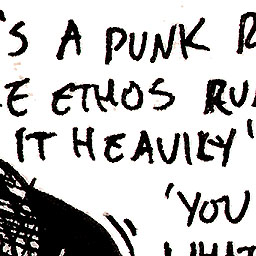 'S A PUNK R
E ETHOS RU
IT HEAVILY'
'YOU
WHAT